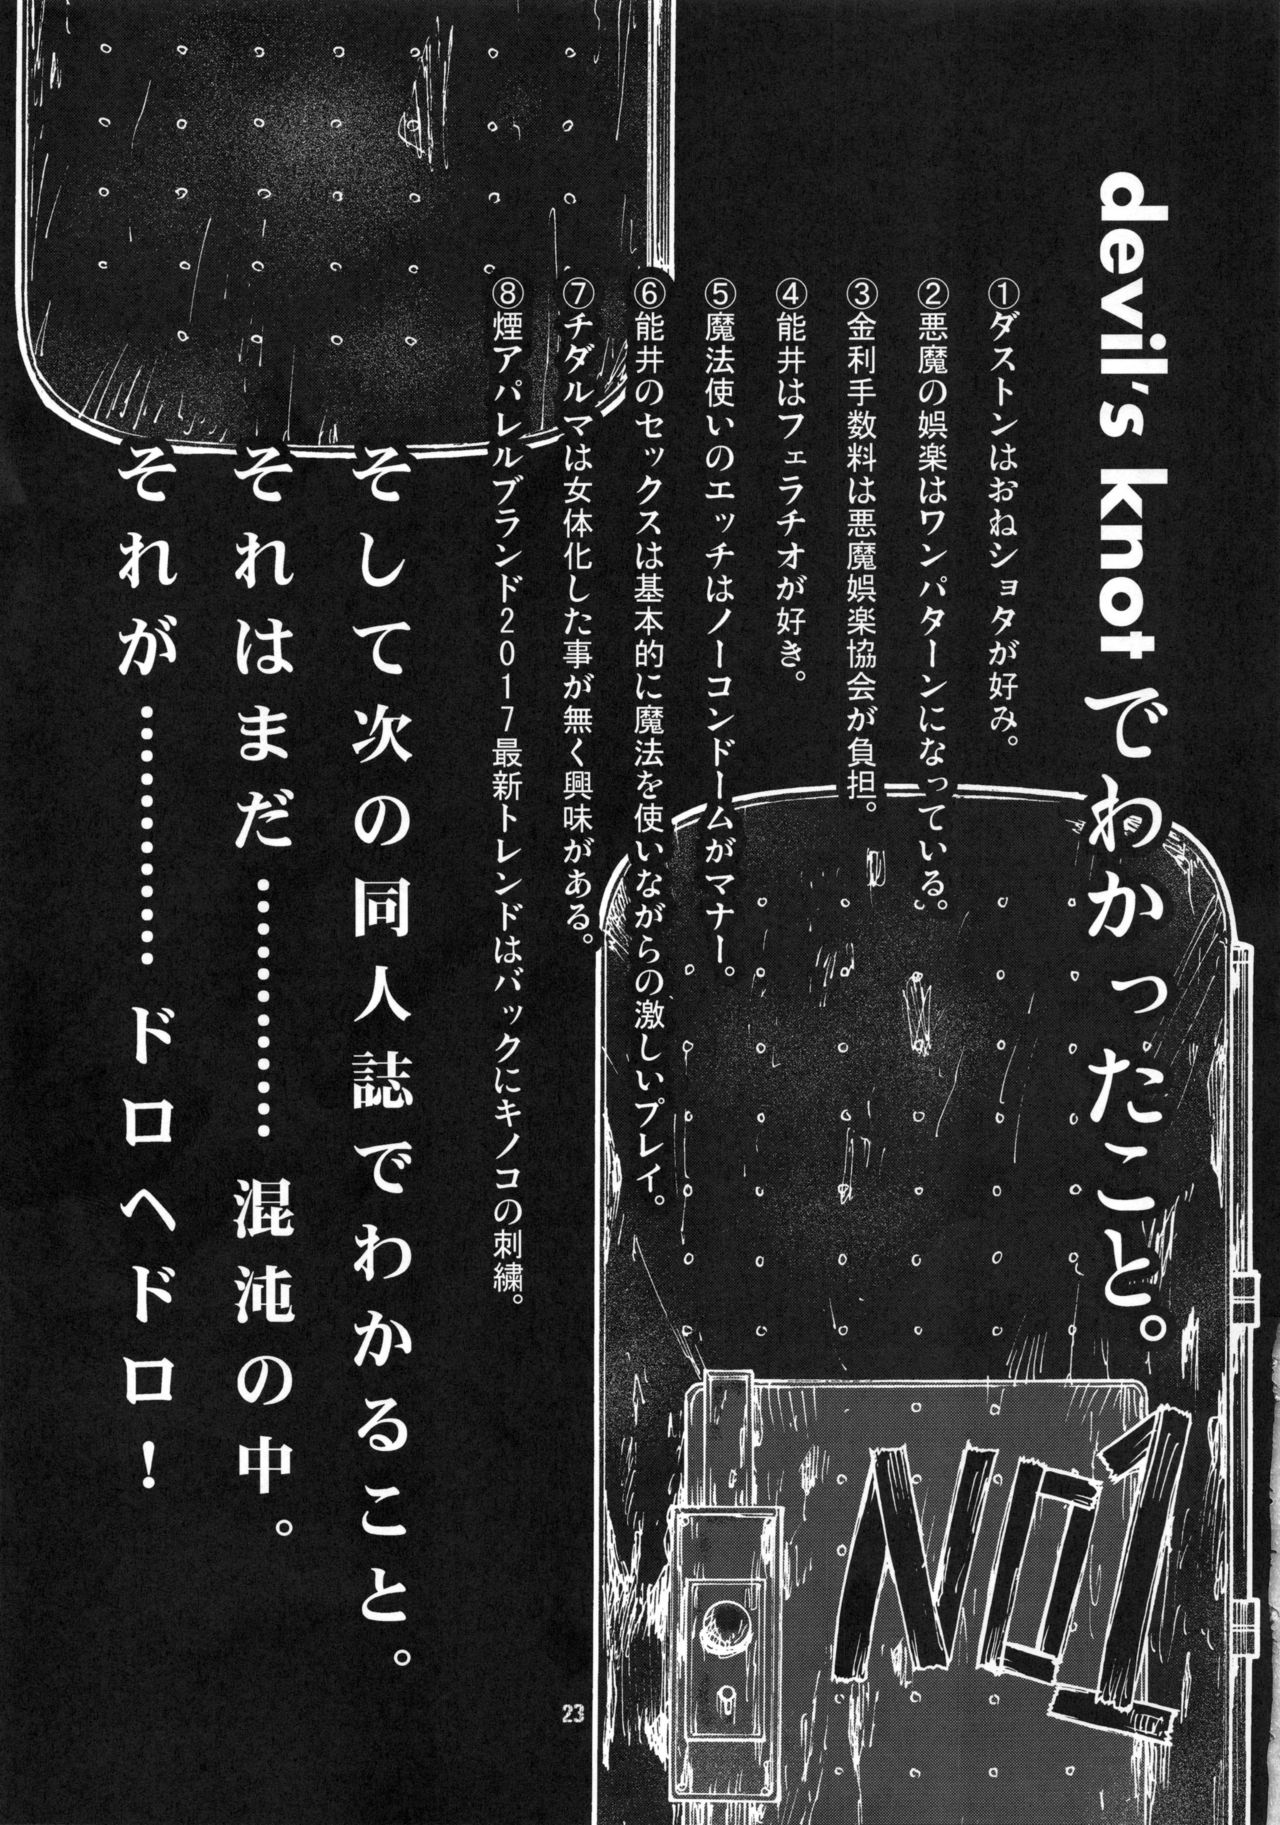 devil's knotでわかったこと。
①ダストンはおねショタが好み。
②悪魔の娯楽はワンパターンになっている。
③金利手数料は悪魔娯楽協会が負担。
④能井はフェラチオが好き。
⑤魔法使いのエッチはノーコンドームがマナー。
⑥能井のセックスは基本的に魔法を使いながらの激しいプレイ。
⑦チダルマは女体化した事が無く興味がある。
⑧煙アパレルブランド2017最新トレンドはバックにキノコの刺繍。
そして次の同人誌でわかること。
それはまだ…………混沌の中。
それが…………ドロヘドロ！
No1
23